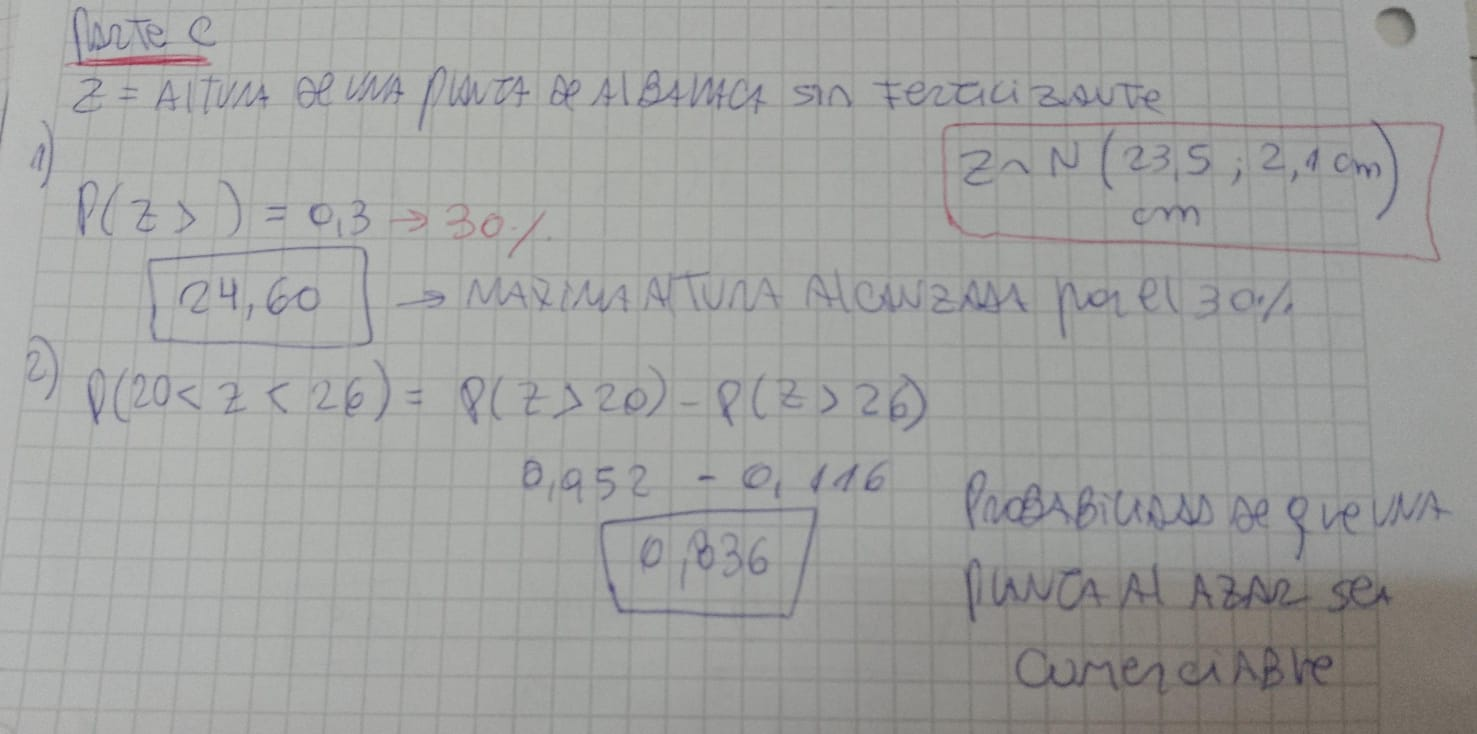 Parte C
Z = Altura de una planta de Albahaca sin Fertilizante
1)
Z ~ N (23,5 ; 2,1 cm)
cm
P(Z > ) = 0,3 → 30%
24,60 → MAXIMA ALTURA ALCANZADA por el 30%
2) P(20 < Z < 26) = P(Z > 20) - P(Z > 26)
0,952 - 0,116
0,836
PROBABILIDAD de que UNA
PLANTA Al AZAR sea
ComerciABle